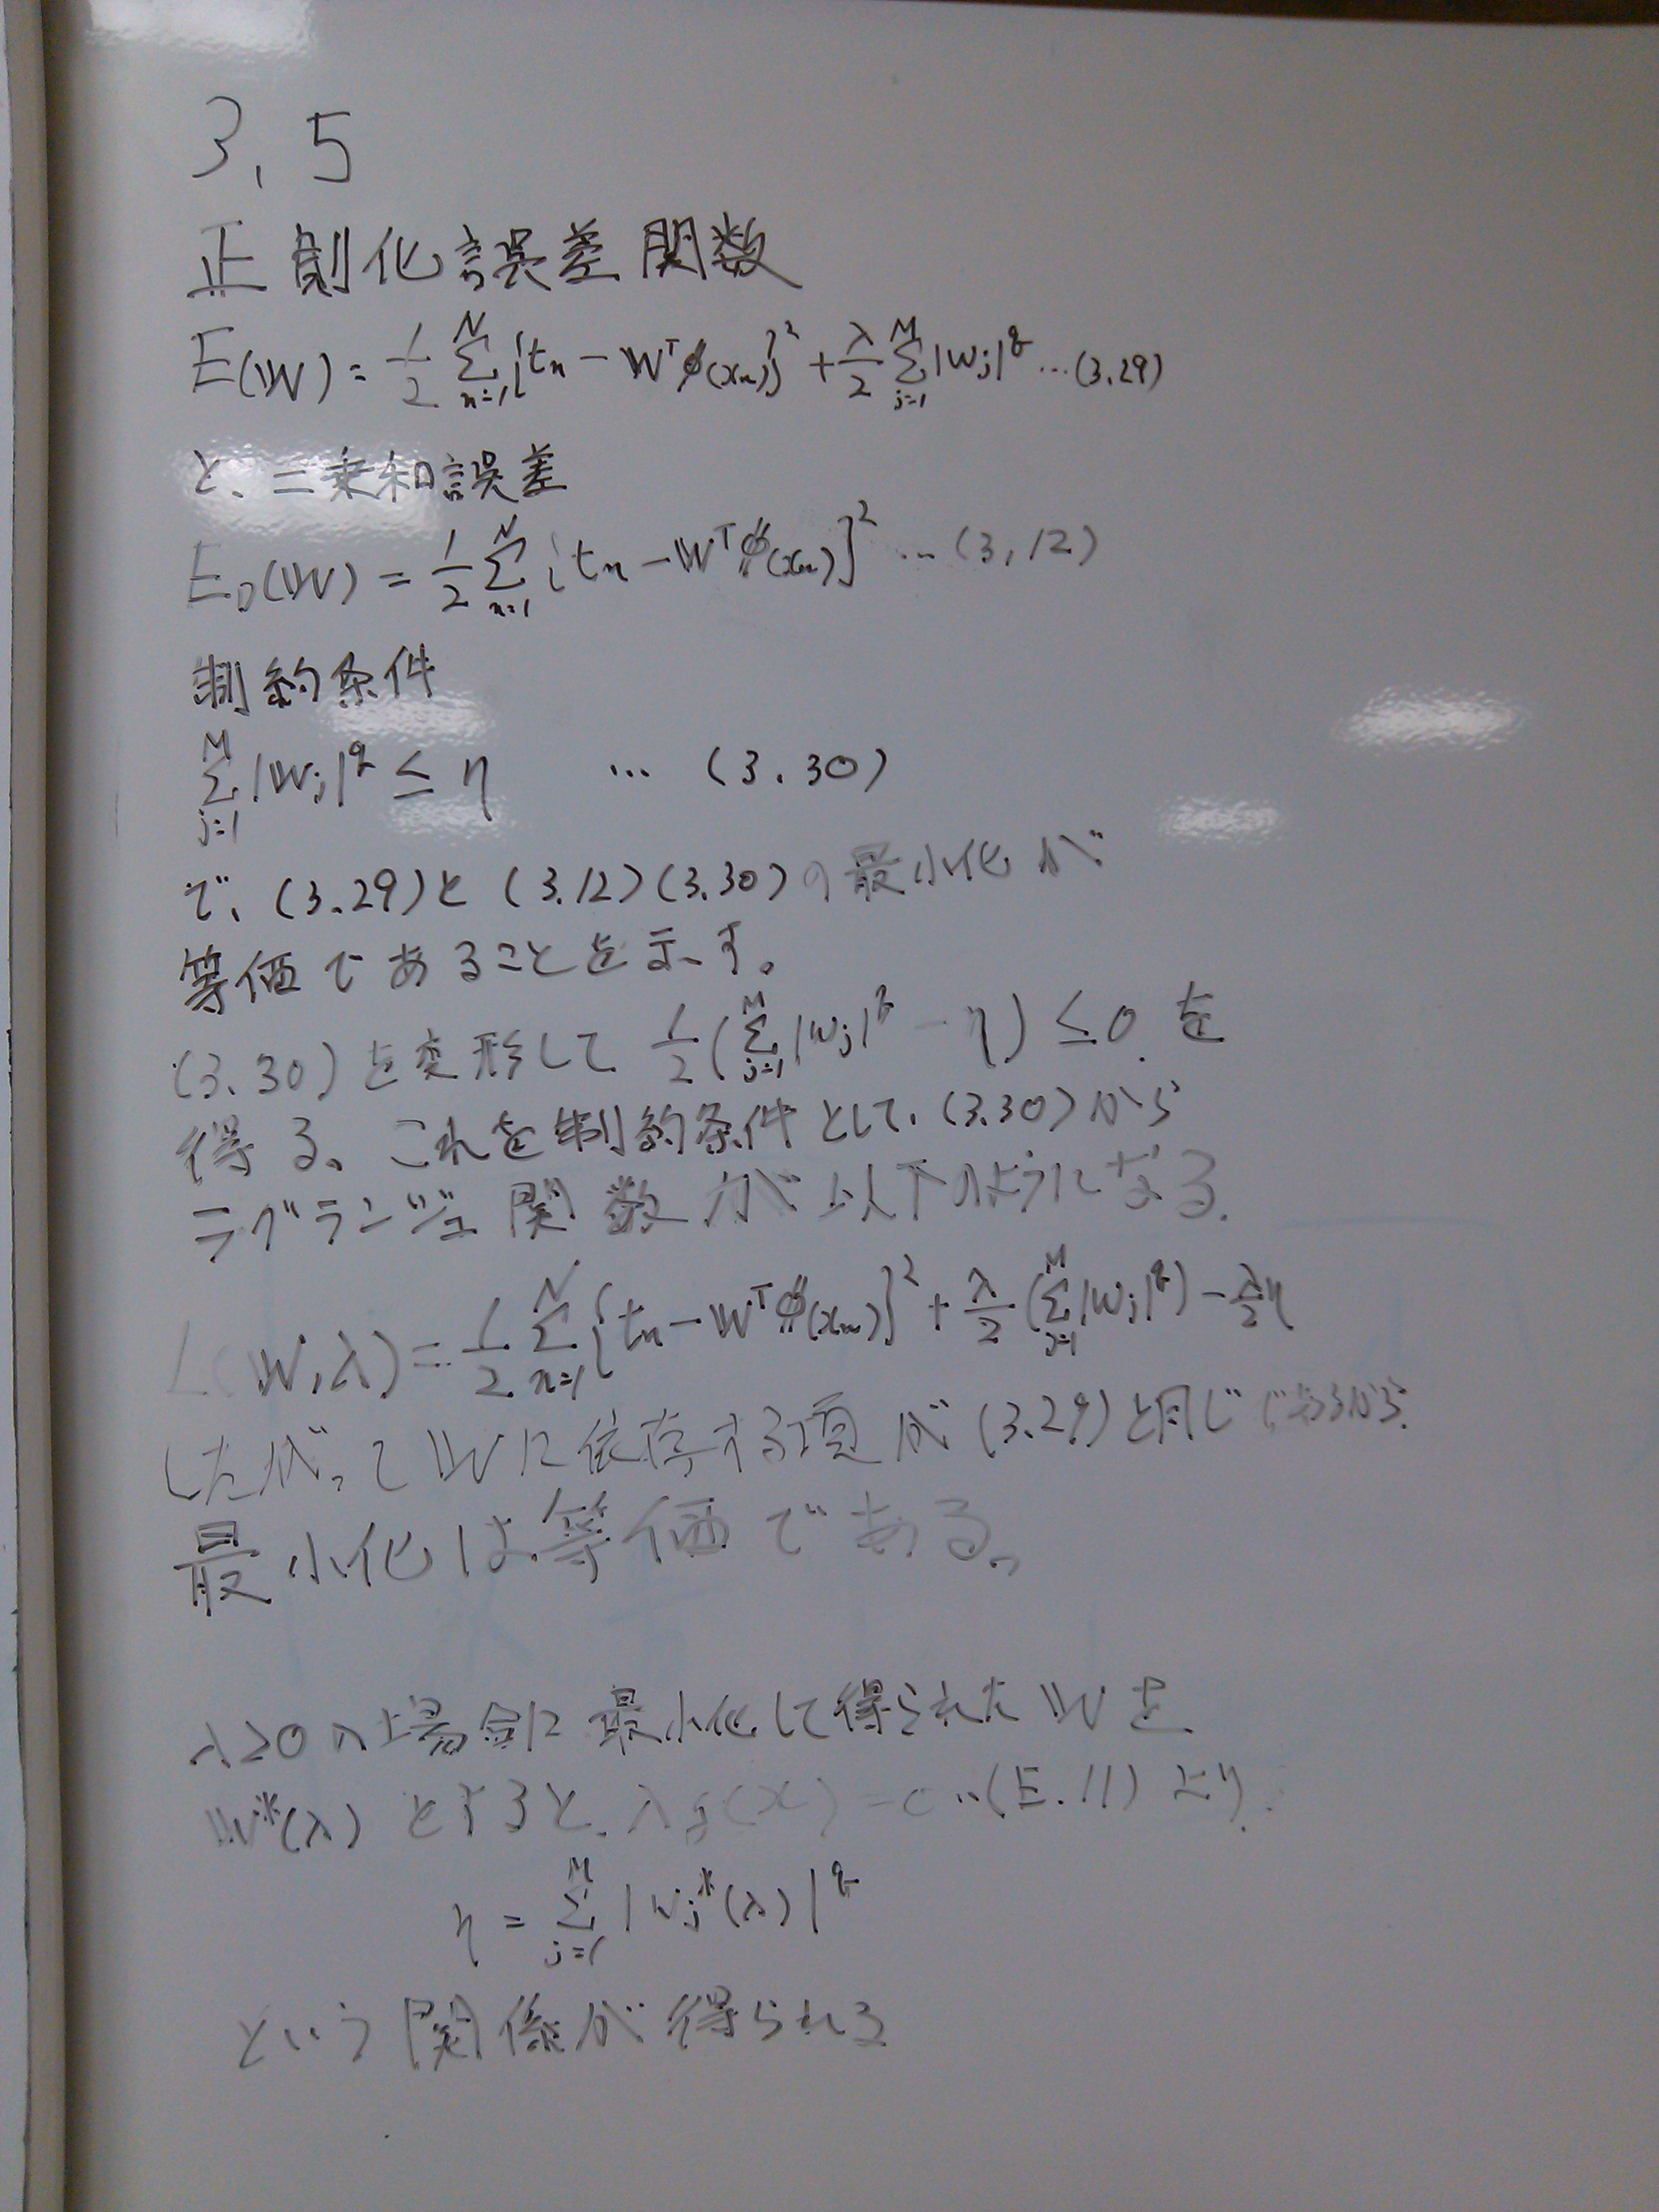 3.5
正則化誤差関数
E(w) = 1/2 Σ_{n=1}^{N} {t_n − w^T φ(x_n)}^2 + λ/2 Σ_{j=1}^{M} |w_j|^q … (3.29)
と、二乗和誤差
E_D(w) = 1/2 Σ_{n=1}^{N} {t_n − w^T φ(x_n)}^2 … (3.12)
制約条件
Σ_{j=1}^{M} |w_j|^q ≤ η … (3.30)
で、(3.29)と(3.12)(3.30)の最小化が
等価であることを示す。
(3.30)を変形して 1/2 (Σ_{j=1}^{M} |w_j|^q − η) ≤ 0 を
得る。これを制約条件として、(3.30)から
ラグランジュ関数が以下のようになる.
L(w,λ) = 1/2 Σ_{n=1}^{N} {t_n − w^T φ(x_n)}^2 + λ/2 (Σ_{j=1}^{M} |w_j|^q) − λ/2 η
したがって w に依存する項が(3.29)と同じであるから
最小化は等価である。
λ≥0の場合に最小化して得られた w を
w*(λ) とすると、λg(x) = 0 …(E.11) より.
η = Σ_{j=1}^{M} |w_j*(λ)|^q
という関係が得られる